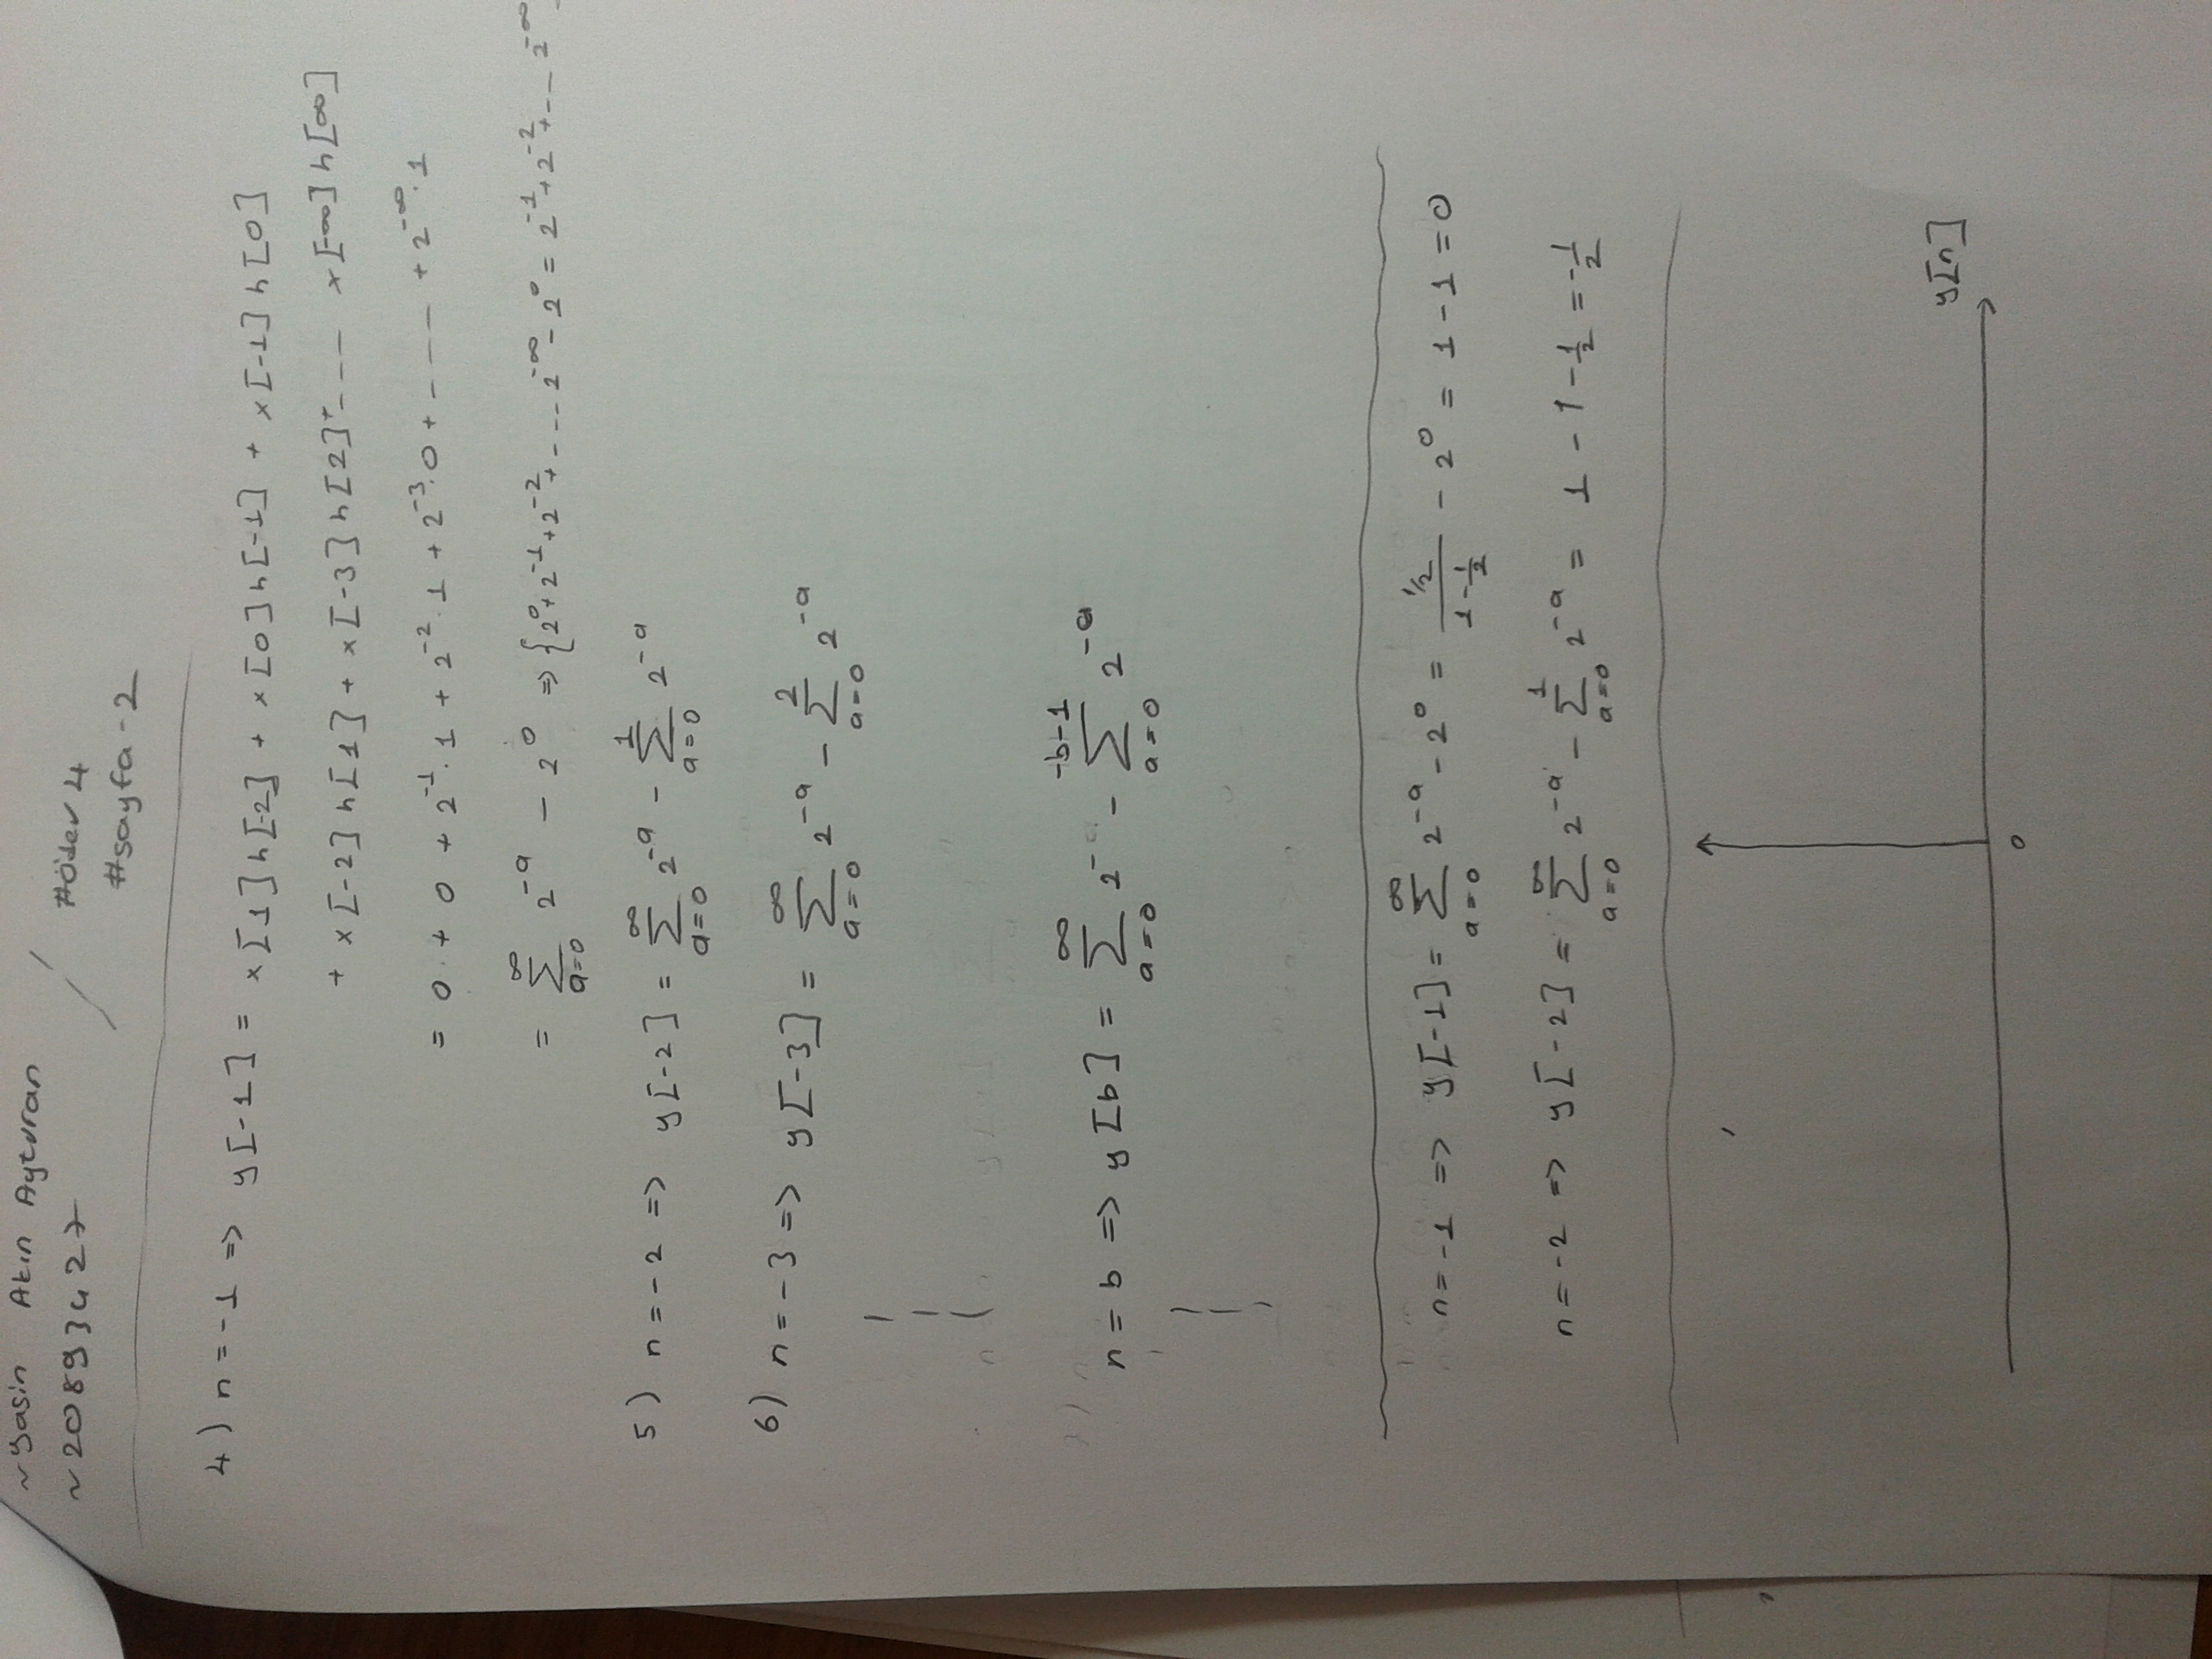 ~ Yasin Akın Ayturan
~ 20893427
#ödev 4
#sayfa-2
4) n=-1 => y[-1] = x[1]h[-2] + x[0]h[-1] + x[-1]h[0]
+ x[-2]h[1] + x[-3]h[2]+---- x[-∞]h[∞]
= 0 + 0 + 2^-1.1 + 2^-2.1 + 2^-3.0 + ---- + 2^-∞.1
= ∞∑a=0 2^-a - 2^0 => {2^0+2^-1+2^-2+----2^-∞-2^0 = 2^-1+2^-2+---2^-∞
5) n=-2 => y[-2] = ∞∑a=0 2^-a - 1∑a=0 2^-a
6) n=-3 => y[-3] = ∞∑a=0 2^-a - 2∑a=0 2^-a
n=b => y[b] = ∞∑a=0 2^-a - -b-1∑a=0 2^-a
n=-1 => y[-1] = ∞∑a=0 2^-a - 2^0 = 1/2 / 1-1/2 - 2^0 = 1-1 = 0
n=-2 => y[-2] = ∞∑a=0 2^-a - 1∑a=0 2^-a = 1 - 1 - 1/2 = -1/2
y[n]
0